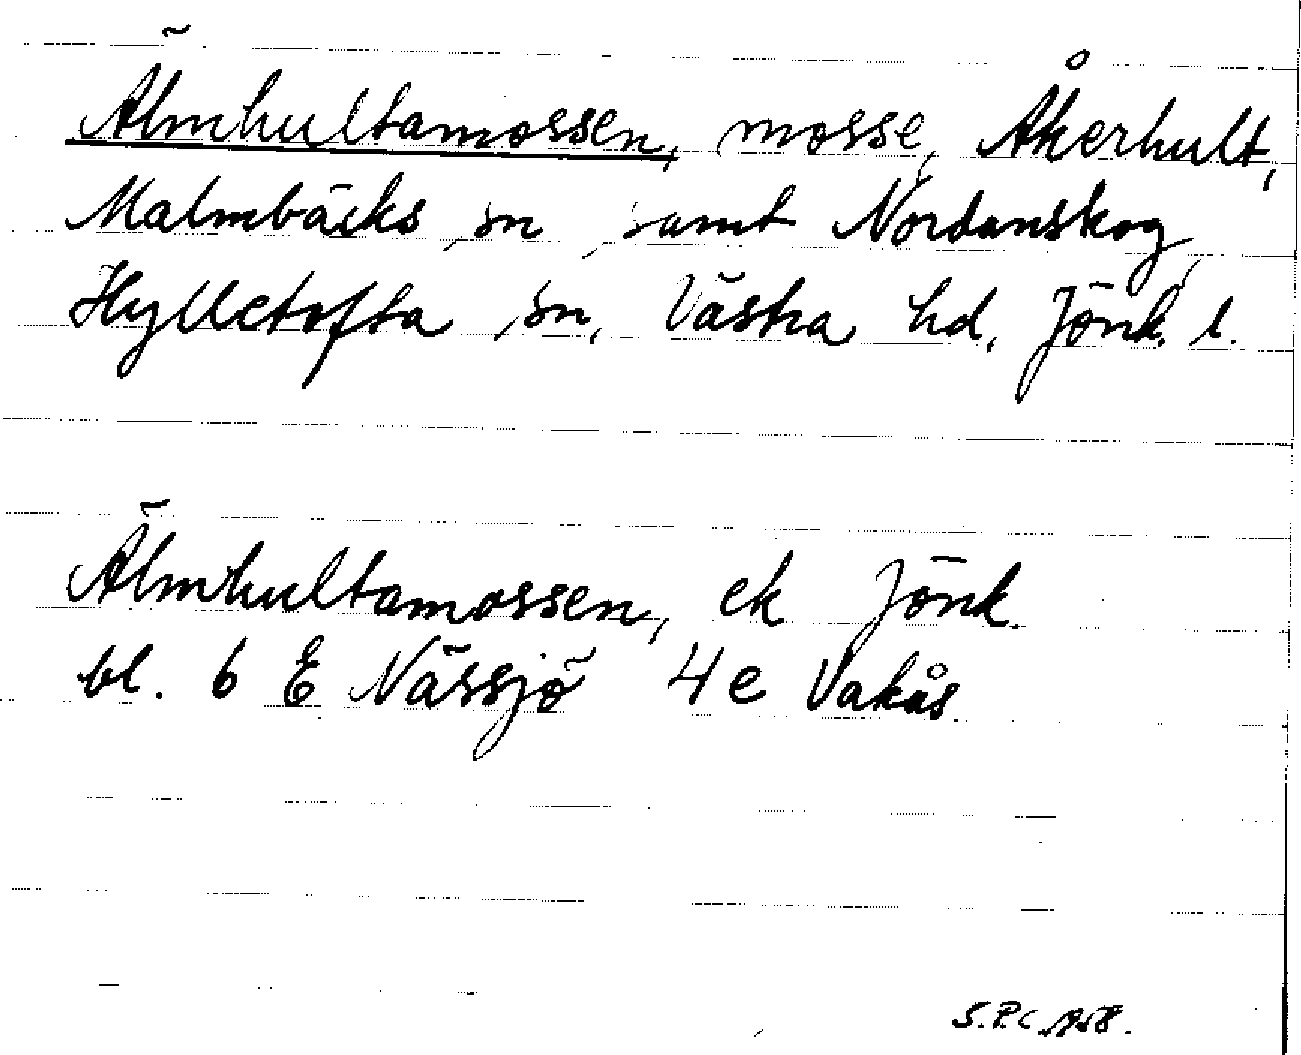 Älmhultamossen, mosse, Åkerhult,
Malmbäcks sn, samt Nordanskog,
Hylletofta sn, Västra hd, Jönk. l.
Älmhultamossen, ek Jönk.
bl. 6 E Nässjö 4e Vakås
S.P.C. 1958.